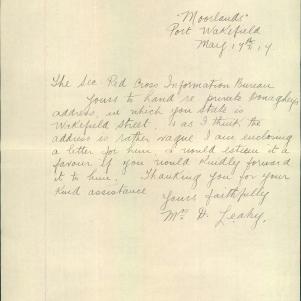 "Moorlands"
Port Wakefield
May 17th 19
The Sec Red Cross Information Bureau
Yours to hand re private Donaghey's
address, in which you state is
Wakefield Street, & as I think the
address is rather vague I am enclosing
a letter for him & would esteem it a
favour if you would kindly forward
it to him. Thanking you for your
kind assistance
Yours faithfully
Mrs D. Leahy.